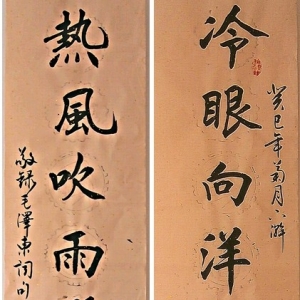 冷眼向洋
癸巳年菊月
熱風吹雨
敬録毛澤東詞句